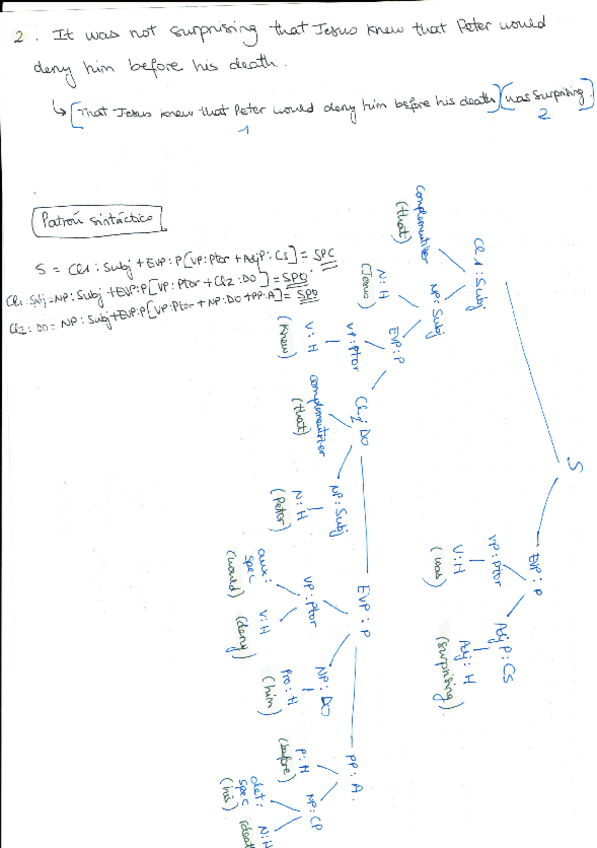 2. It was not surprising that Jesus knew that Peter would
deny him before his death.
↳ [That Jesus knew that Peter would deny him before his death] [was surprising]
1 2
Patrón sintáctico
S = Cl1: Subj + EVP: P [VP: Ptor + AdjP: Cs] = SPC
Cl1: Subj = NP: Subj + EVP: P [VP: Ptor + Cl2: DO] = SPO
Cl2: DO = NP: Subj + EVP: P [VP: Ptor + NP: DO + PP: A] = SPO
S
Cl1: Subj
EVP: P
complementizer
(that)
NP: Subj
N: H
(Jesus)
EVP: P
VP: Ptor
V: H
(knew)
Cl2: DO
complementizer
(that)
NP: Subj
N: H
(Peter)
EVP: P
VP: Ptor
aux:
spec
(would)
V: H
(deny)
NP: DO
Pro: H
(him)
PP: A.
P: H
(before)
NP: CP
det:
spec
(his)
N: H
(death
VP: Ptor
V: H
(was)
AdjP: Cs
Adj: H
(surprising)